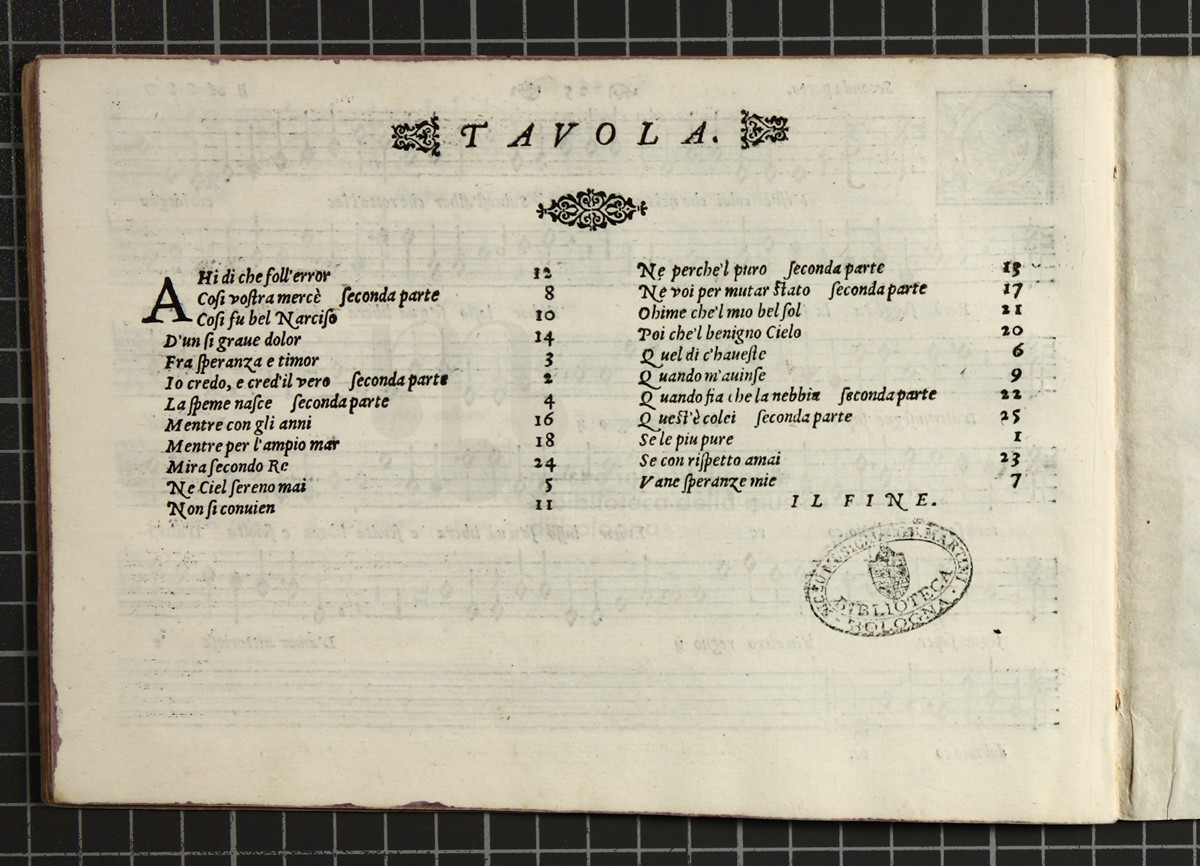 TAVOLA.
AHi di che foll'error 12
Cosi vostra mercè seconda parte 8
Cosi fu bel Narciso 10
D'un si graue dolor 14
Fra speranza e timor 3
Io credo, e cred'il vero seconda parte 2
La speme nasce seconda parte 4
Mentre con gli anni 16
Mentre per l'ampio mar 18
Mira secondo Re 24
Ne Ciel sereno mai 5
Non si conuien 11
Ne perche'l puro seconda parte 13
Ne voi per mutar stato seconda parte 17
Ohime che'l mio bel sol 21
Poi che'l benigno Cielo 20
Quel dì c'haueste 6
Quando m'auinse 9
Quando fia che la nebbia seconda parte 22
Quest'è colei seconda parte 25
Se le piu pure 1
Se con rispetto amai 23
Vane speranze mie 7
IL FINE.
MARTINI
BIBLIOTECA
BOLOGNA